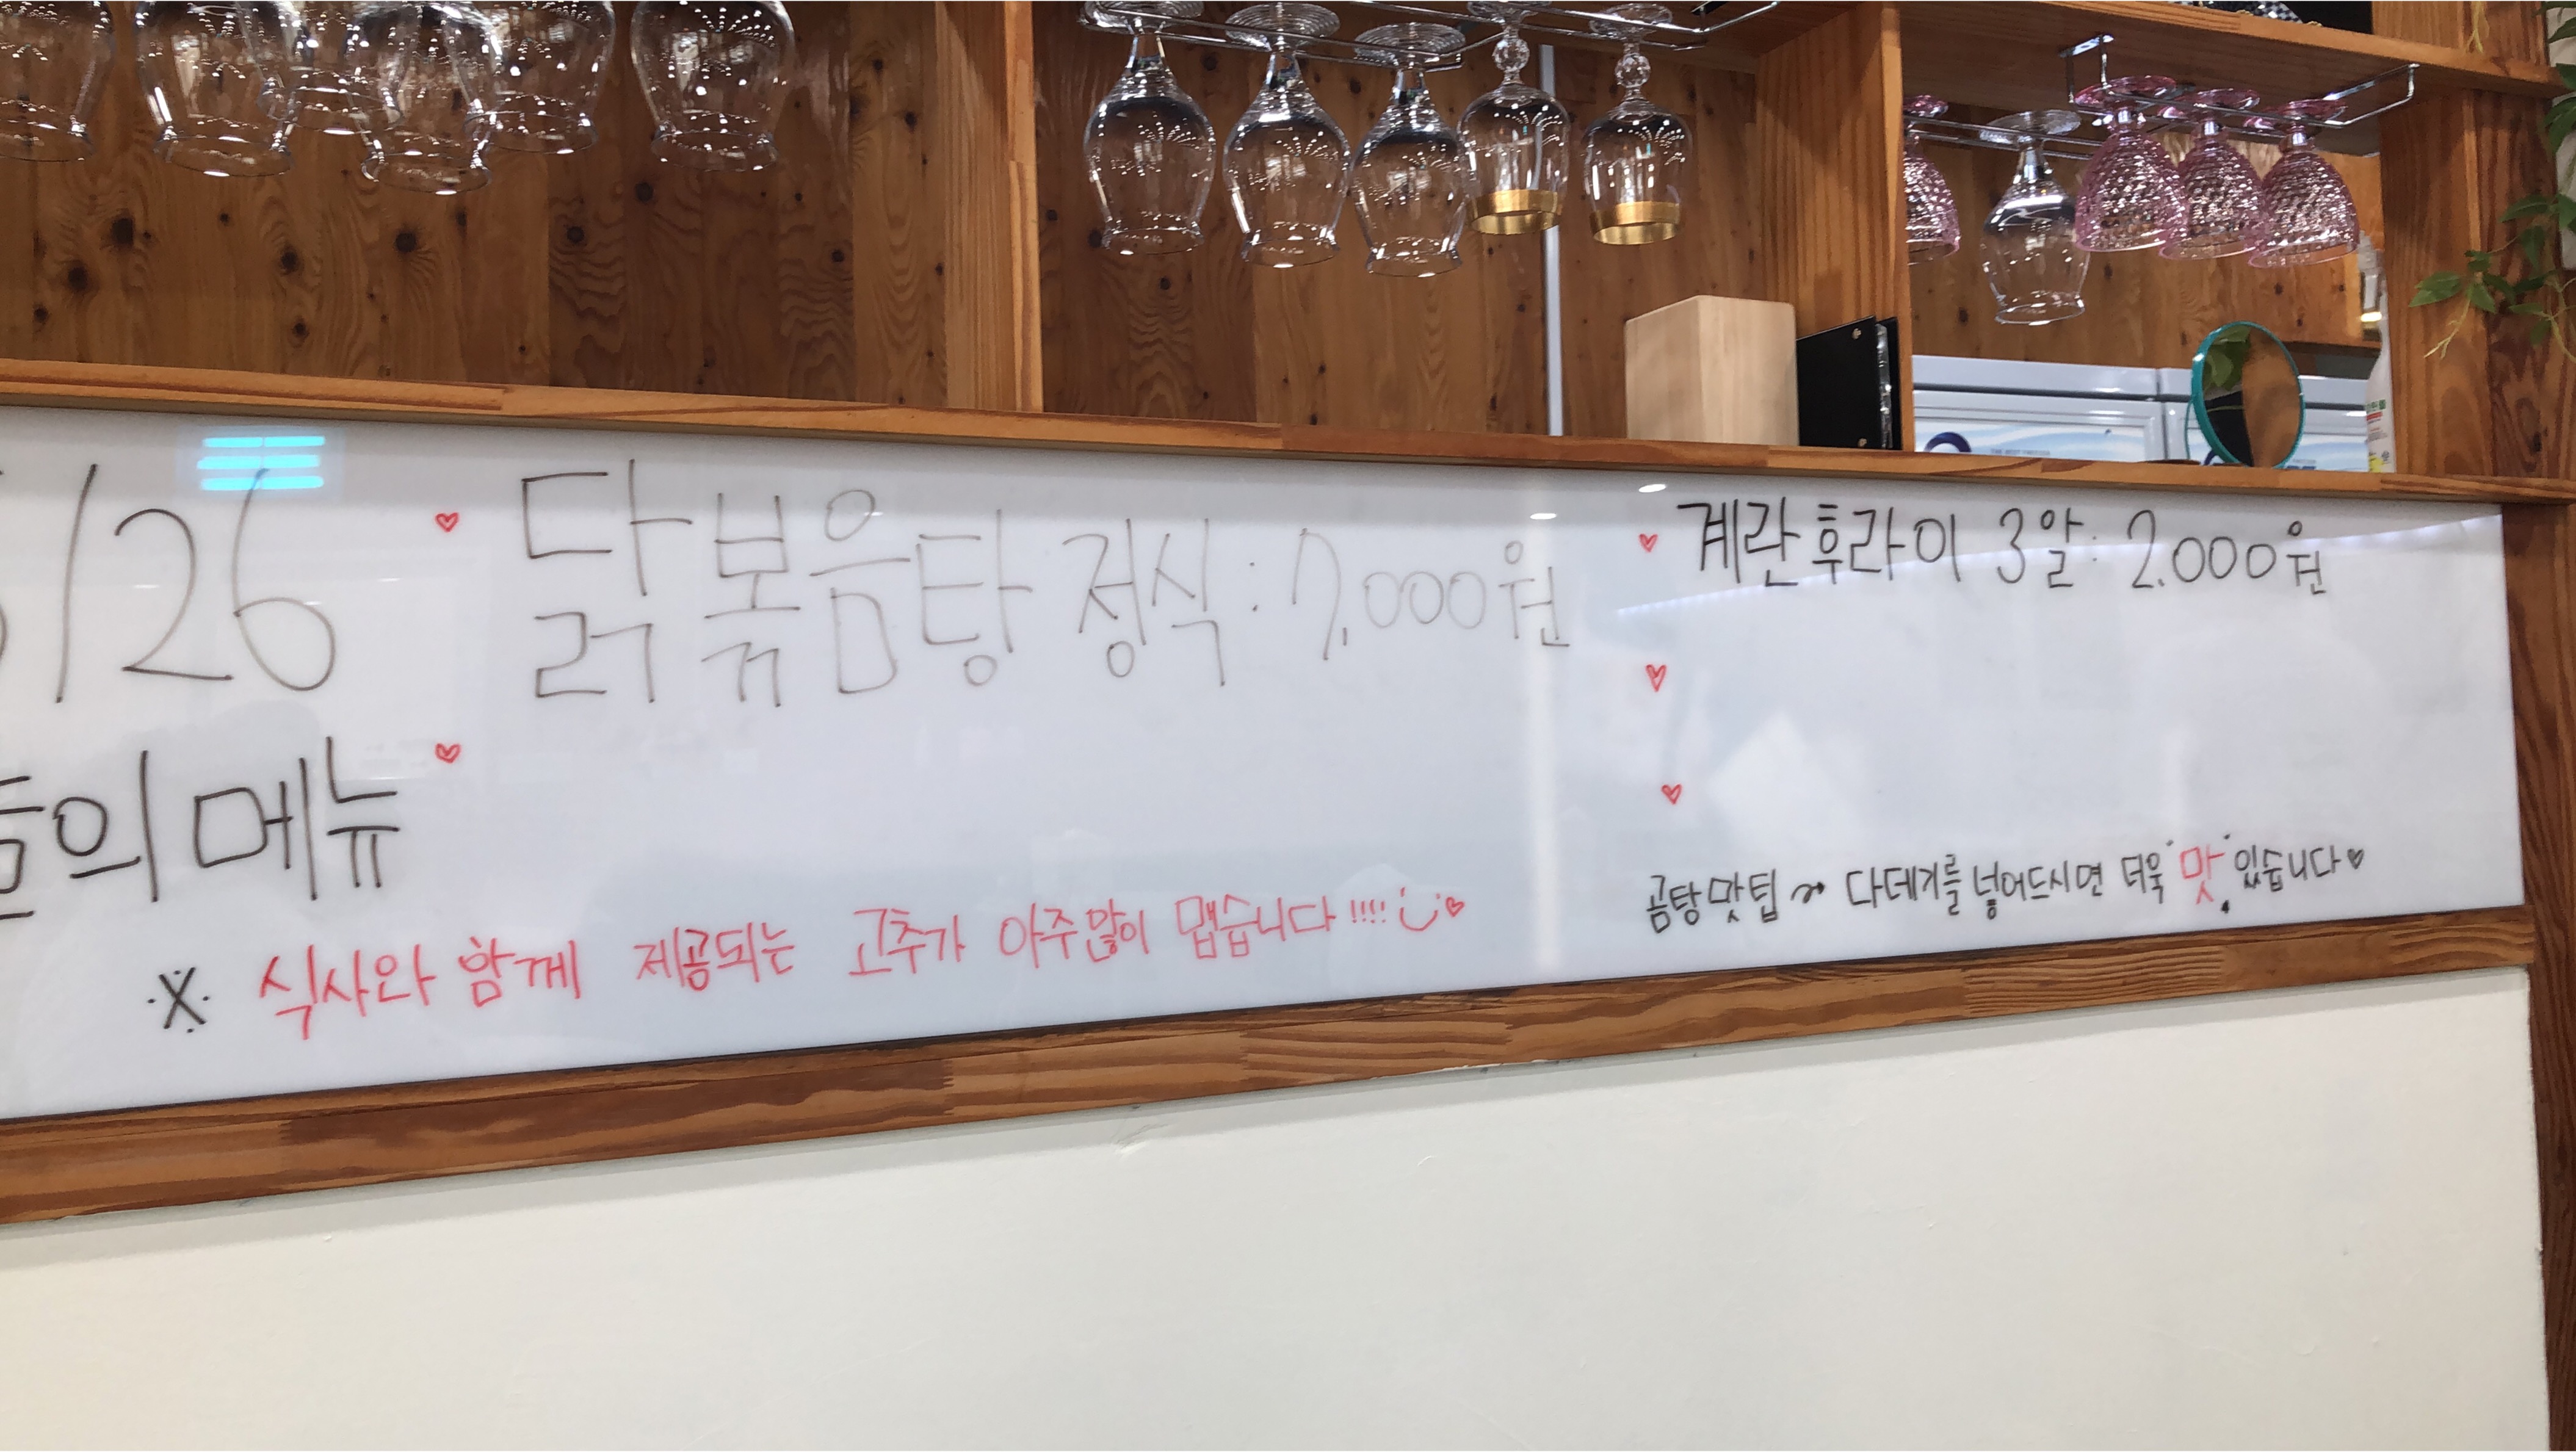 /26
♥ 닭볶음탕 정식 : 7,000원
♥ 계란후라이 3알 : 2.000원
의 메뉴
♥
♥
♥
곰탕 맛팁~ 다데기를 넣어드시면 더욱 맛있습니다♥
※ 식사와 함께 제공되는 고추가 아주많이 맵습니다!!!! ♥